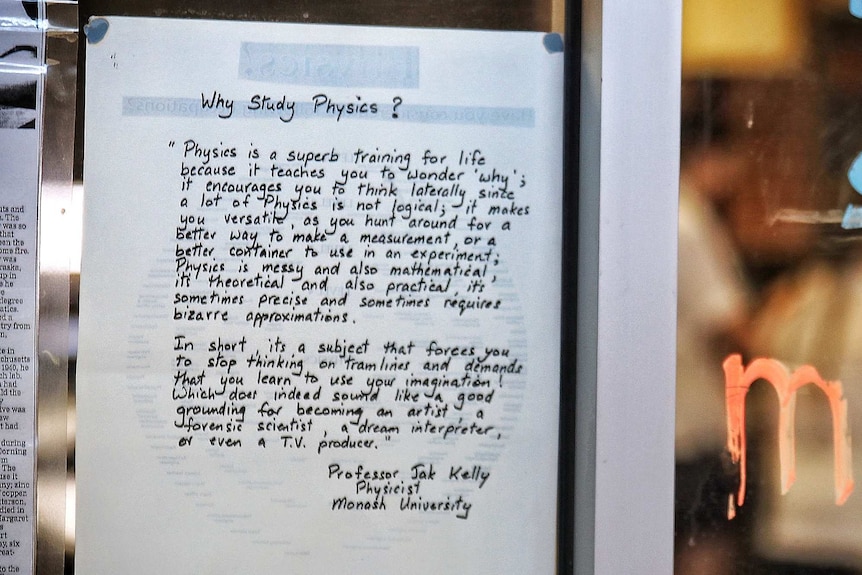 Why Study Physics ?
" Physics is a superb training for life
because it teaches you to wonder 'why';
it encourages you to think laterally since
a lot of Physics is not logical; it makes
you versatile, as you hunt around for a
better way to make a measurement, or a
better container to use in an experiment;
Physics is messy and also mathematical,
its theoretical and also practical, its
sometimes precise and sometimes requires
bizarre approximations.
In short its a subject that forces you
to stop thinking on tramlines and demands
that you learn to use your imagination!
Which does indeed sound like a good
grounding for becoming an artist, a
forensic scientist, a dream interpreter,
or even a T.V. producer."
Professor Jak Kelly
Physicist
Monash University
m